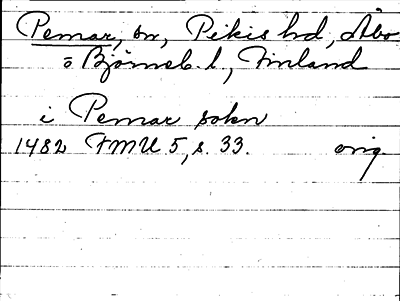 Pemar, sn, Pikis hd, Åbo
o Björneb. l, Finland
i Pemar sokn
1482 FMU 5, s. 33. orig.